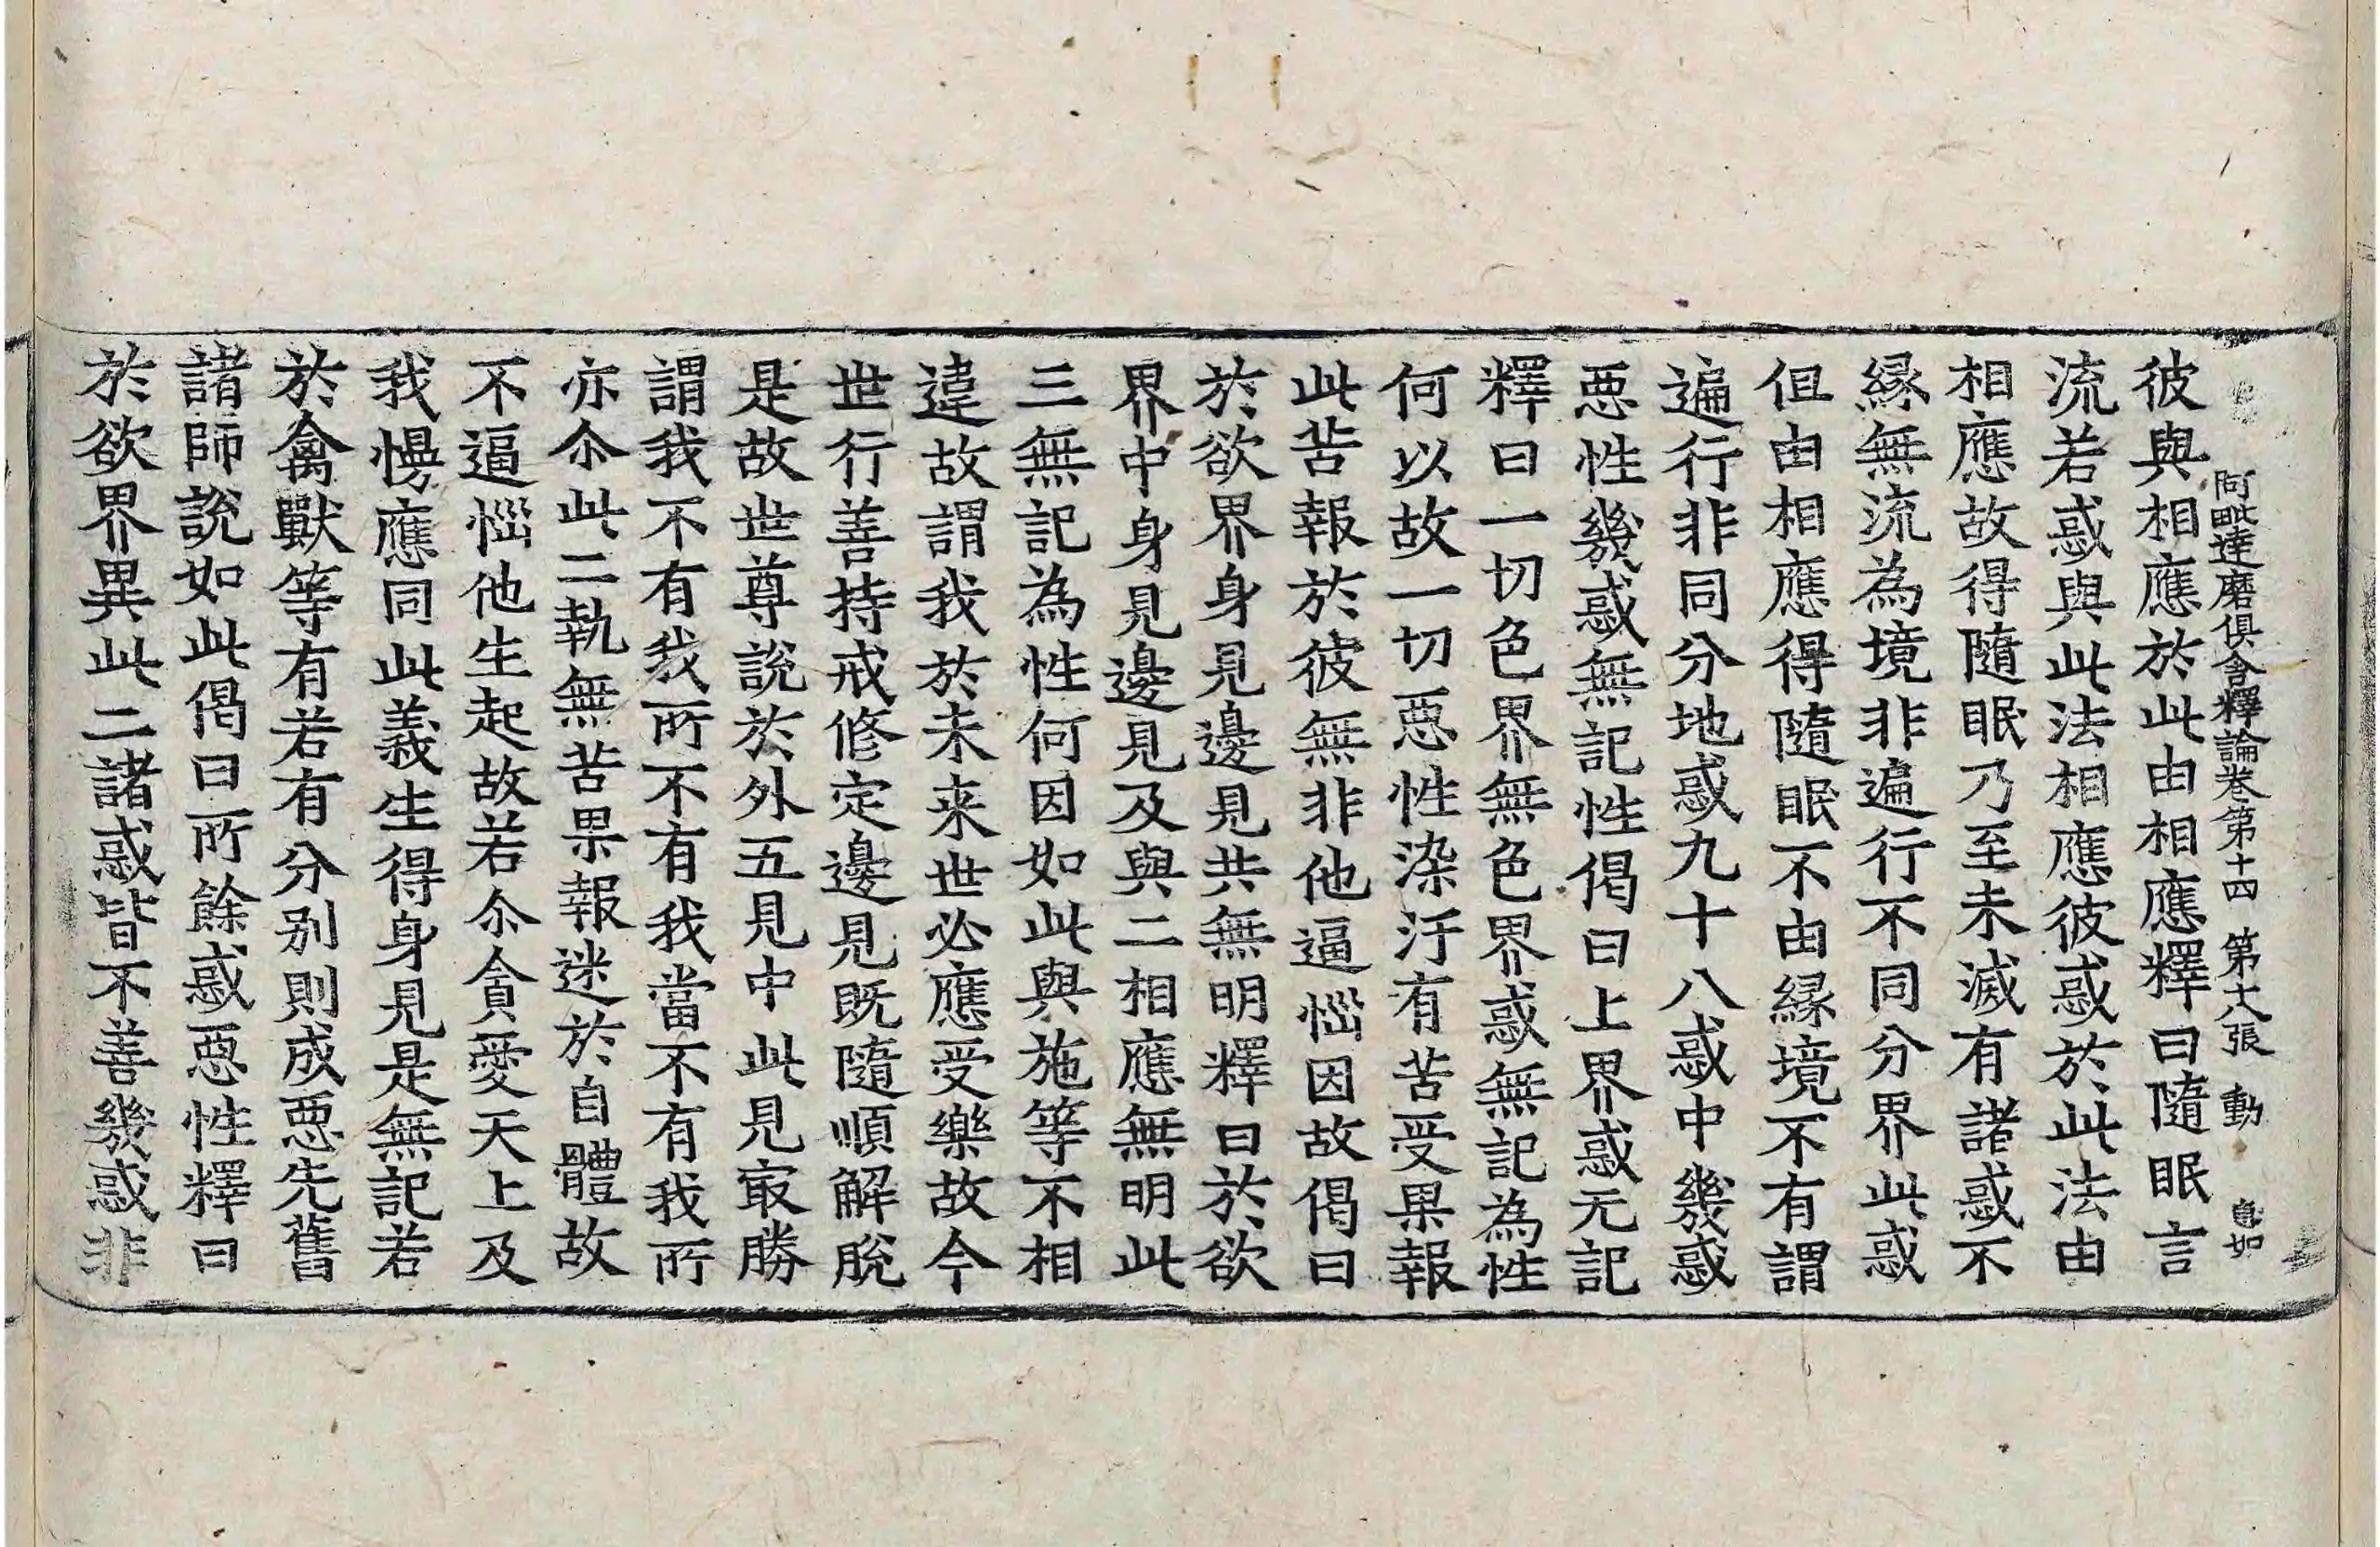 阿毗達磨俱舍釋論卷第十四 第十八張 動
彼與相應於此由相應釋曰隨眠言
流若惑與此法相應彼惑於此法由
相應故得隨眠乃至未滅有諸惑不
縁無流為境非遍行不同分界此惑
但由相應得隨眠不由縁境不有謂
遍行非同分地惑九十八惑中幾惑
惡性幾惑無記性偈曰上界惑无記
釋曰一切色界無色界惑無記為性
何以故一切惡性染汙有苦受果報
此苦報於彼無非他逼惱因故偈曰
於欲界身見邊見共無明釋曰於欲
界中身見邊見及與二相應無明此
三無記為性何因如此與施等不相
違故謂我於未来世必應受樂故今
世行善持戒修定邊見既隨順解脫
是故世尊說於外五見中此見㝡勝
謂我不有我所不有我當不有我所
亦尒此二執無苦果報迷於自體故
不逼惱他生起故若尒貪愛天上及
我慢應同此義生得身見是無記若
於禽獸等有若有分别則成惡先舊
諸師說如此偈曰所餘惑惡性釋曰
於欲界異此二諸惑皆不善幾惑非